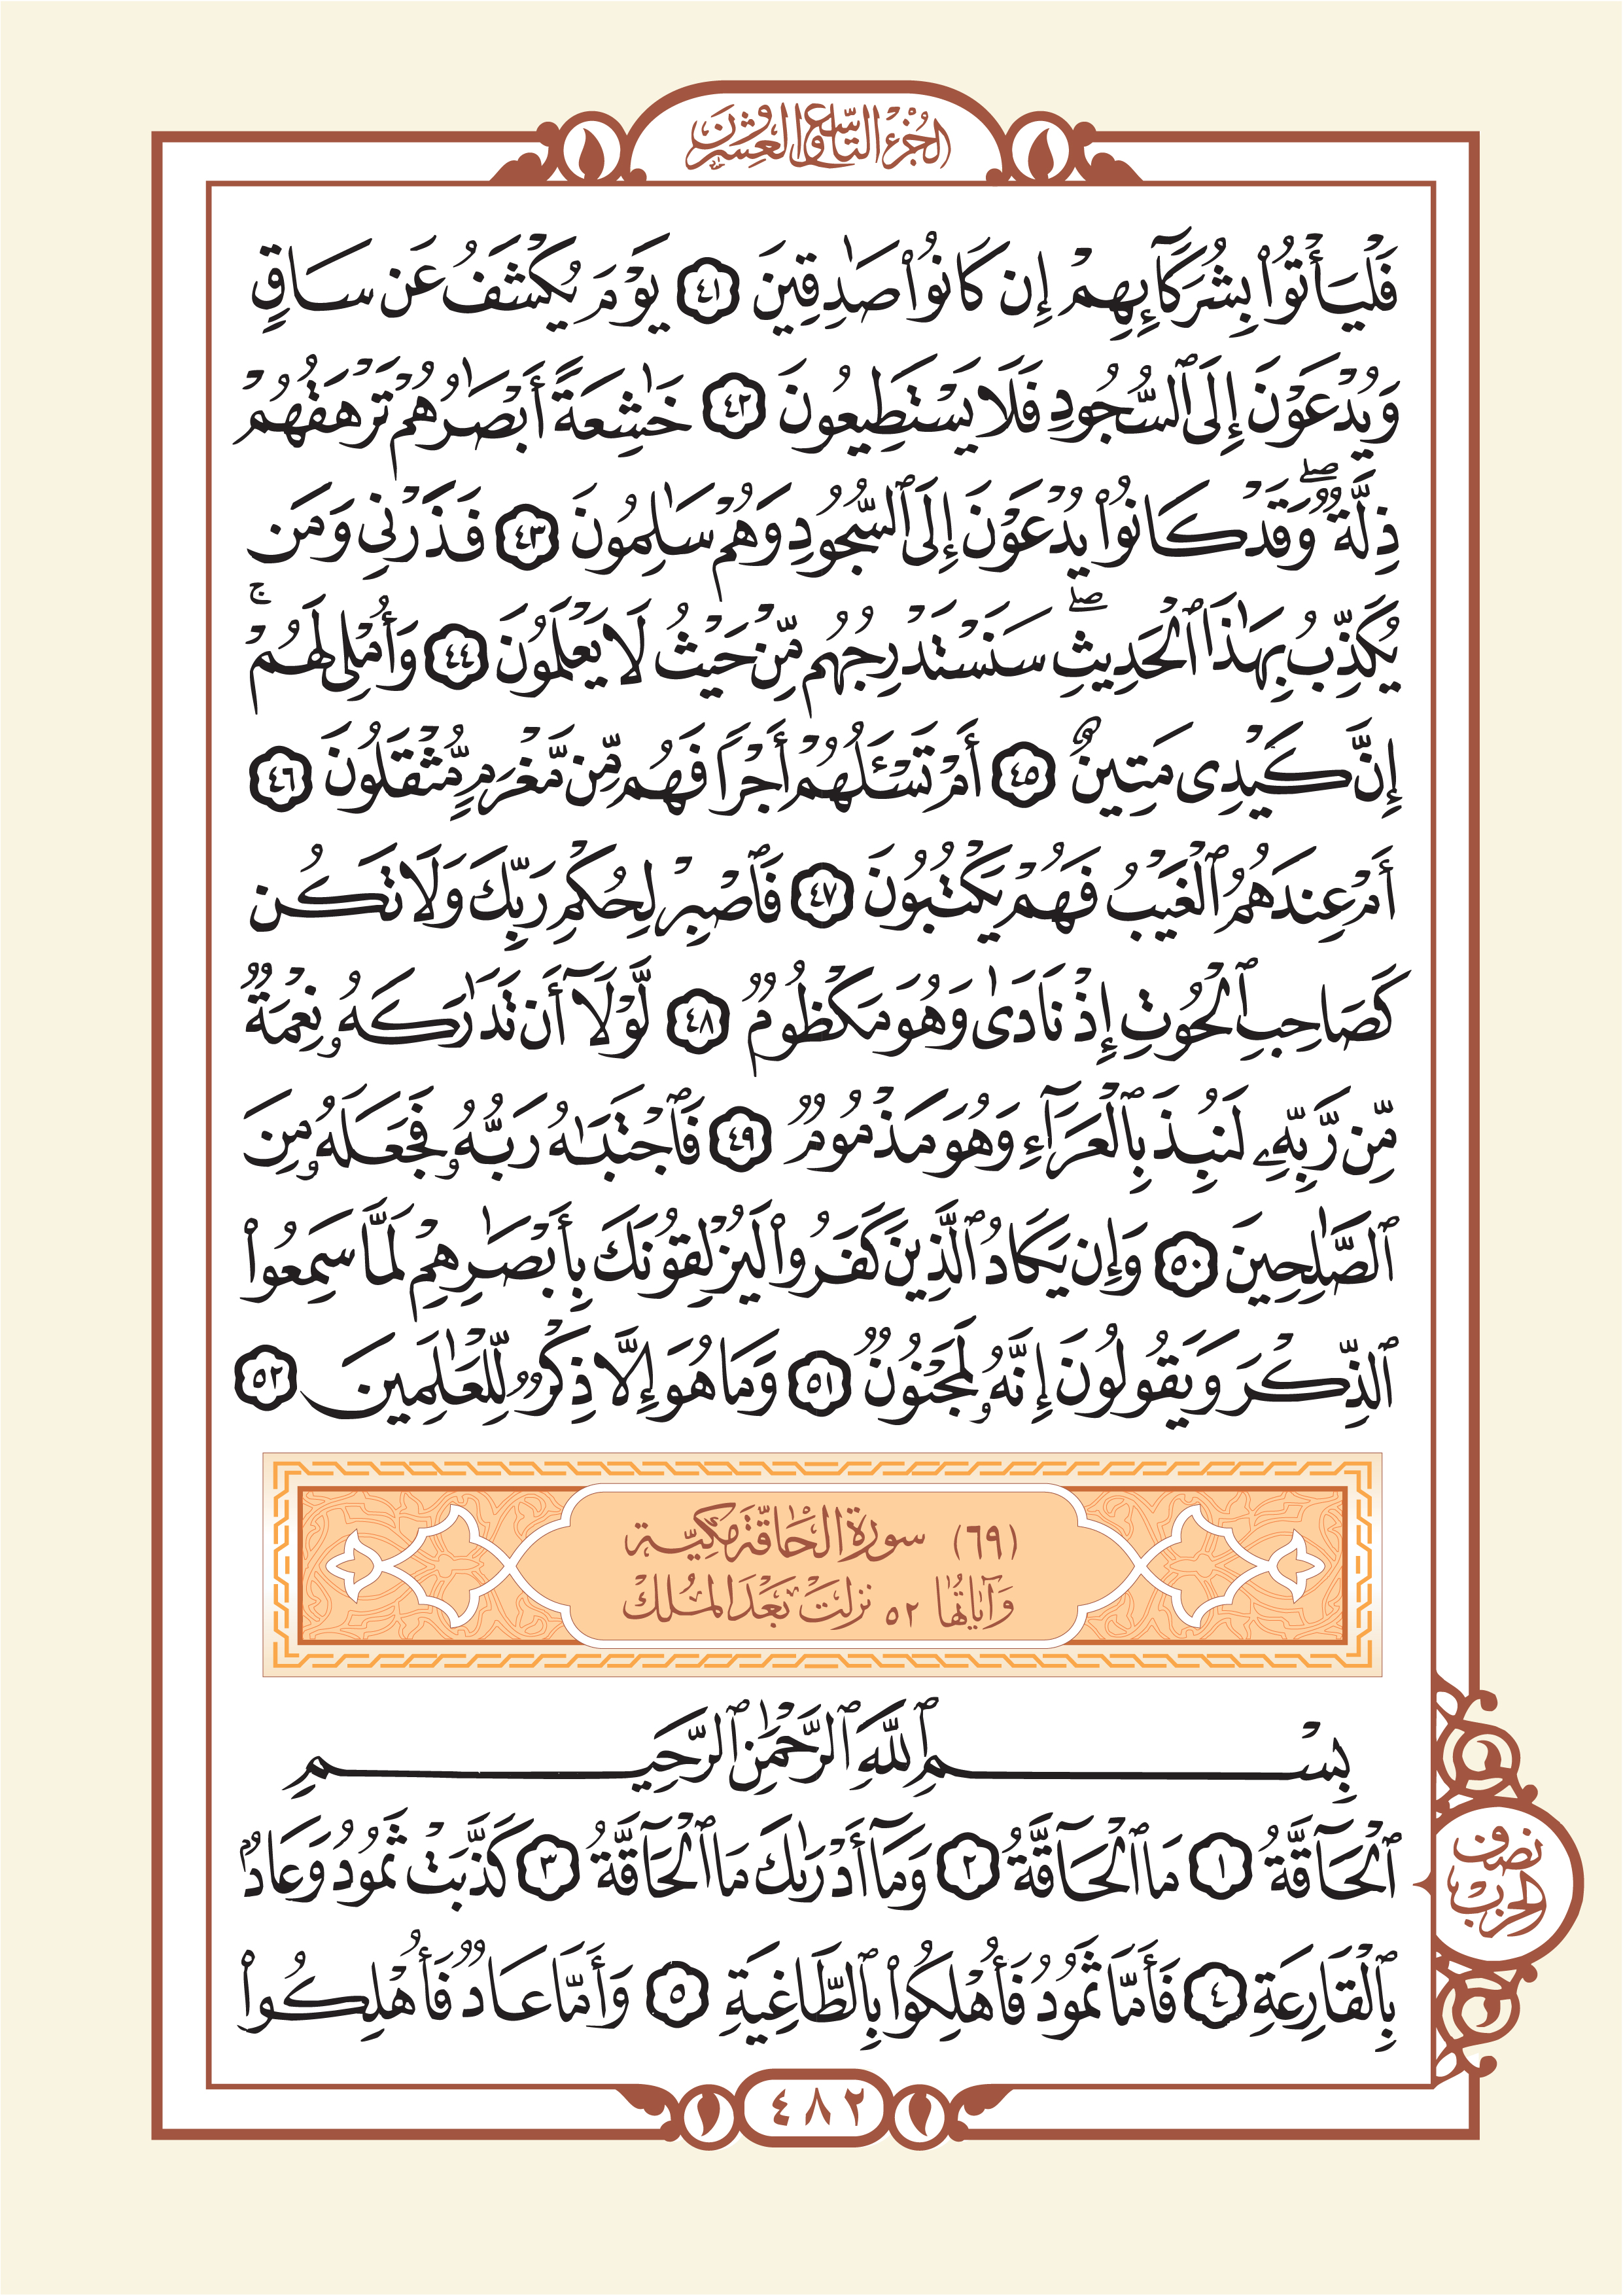 الجزء التاسع والعشرون
فَلْيَأْتُوا۟ بِشُرَكَآئِهِمْ إِن كَانُوا۟ صَـٰدِقِينَ ٤١ يَوْمَ يُكْشَفُ عَن سَاقٍ
وَيُدْعَوْنَ إِلَى ٱلسُّجُودِ فَلَا يَسْتَطِيعُونَ ٤٢ خَـٰشِعَةً أَبْصَـٰرُهُمْ تَرْهَقُهُمْ
ذِلَّةٌ ۖ وَقَدْ كَانُوا۟ يُدْعَوْنَ إِلَى ٱلسُّجُودِ وَهُمْ سَـٰلِمُونَ ٤٣ فَذَرْنِى وَمَن
يُكَذِّبُ بِهَـٰذَا ٱلْحَدِيثِ ۖ سَنَسْتَدْرِجُهُم مِّنْ حَيْثُ لَا يَعْلَمُونَ ٤٤ وَأُمْلِى لَهُمْ ۚ
إِنَّ كَيْدِى مَتِينٌ ٤٥ أَمْ تَسْـَٔلُهُمْ أَجْرًا فَهُم مِّن مَّغْرَمٍ مُّثْقَلُونَ ٤٦
أَمْ عِندَهُمُ ٱلْغَيْبُ فَهُمْ يَكْتُبُونَ ٤٧ فَٱصْبِرْ لِحُكْمِ رَبِّكَ وَلَا تَكُن
كَصَاحِبِ ٱلْحُوتِ إِذْ نَادَىٰ وَهُوَ مَكْظُومٌ ٤٨ لَّوْلَآ أَن تَدَٰرَكَهُۥ نِعْمَةٌ
مِّن رَّبِّهِۦ لَنُبِذَ بِٱلْعَرَآءِ وَهُوَ مَذْمُومٌ ٤٩ فَٱجْتَبَـٰهُ رَبُّهُۥ فَجَعَلَهُۥ مِنَ
ٱلصَّـٰلِحِينَ ٥٠ وَإِن يَكَادُ ٱلَّذِينَ كَفَرُوا۟ لَيُزْلِقُونَكَ بِأَبْصَـٰرِهِمْ لَمَّا سَمِعُوا۟
ٱلذِّكْرَ وَيَقُولُونَ إِنَّهُۥ لَمَجْنُونٌ ٥١ وَمَا هُوَ إِلَّا ذِكْرٌ لِّلْعَـٰلَمِينَ ٥٢
(٦٩) سورة الحاقة مكية
وآياتها ٥٢ نزلت بعد الملك
بِسْمِ ٱللَّهِ ٱلرَّحْمَـٰنِ ٱلرَّحِيمِ
ٱلْحَآقَّةُ ١ مَا ٱلْحَآقَّةُ ٢ وَمَآ أَدْرَىٰكَ مَا ٱلْحَآقَّةُ ٣ كَذَّبَتْ ثَمُودُ وَعَادٌۢ
بِٱلْقَارِعَةِ ٤ فَأَمَّا ثَمُودُ فَأُهْلِكُوا۟ بِٱلطَّاغِيَةِ ٥ وَأَمَّا عَادٌ فَأُهْلِكُوا۟
نصف
الحزب
٤٨٢